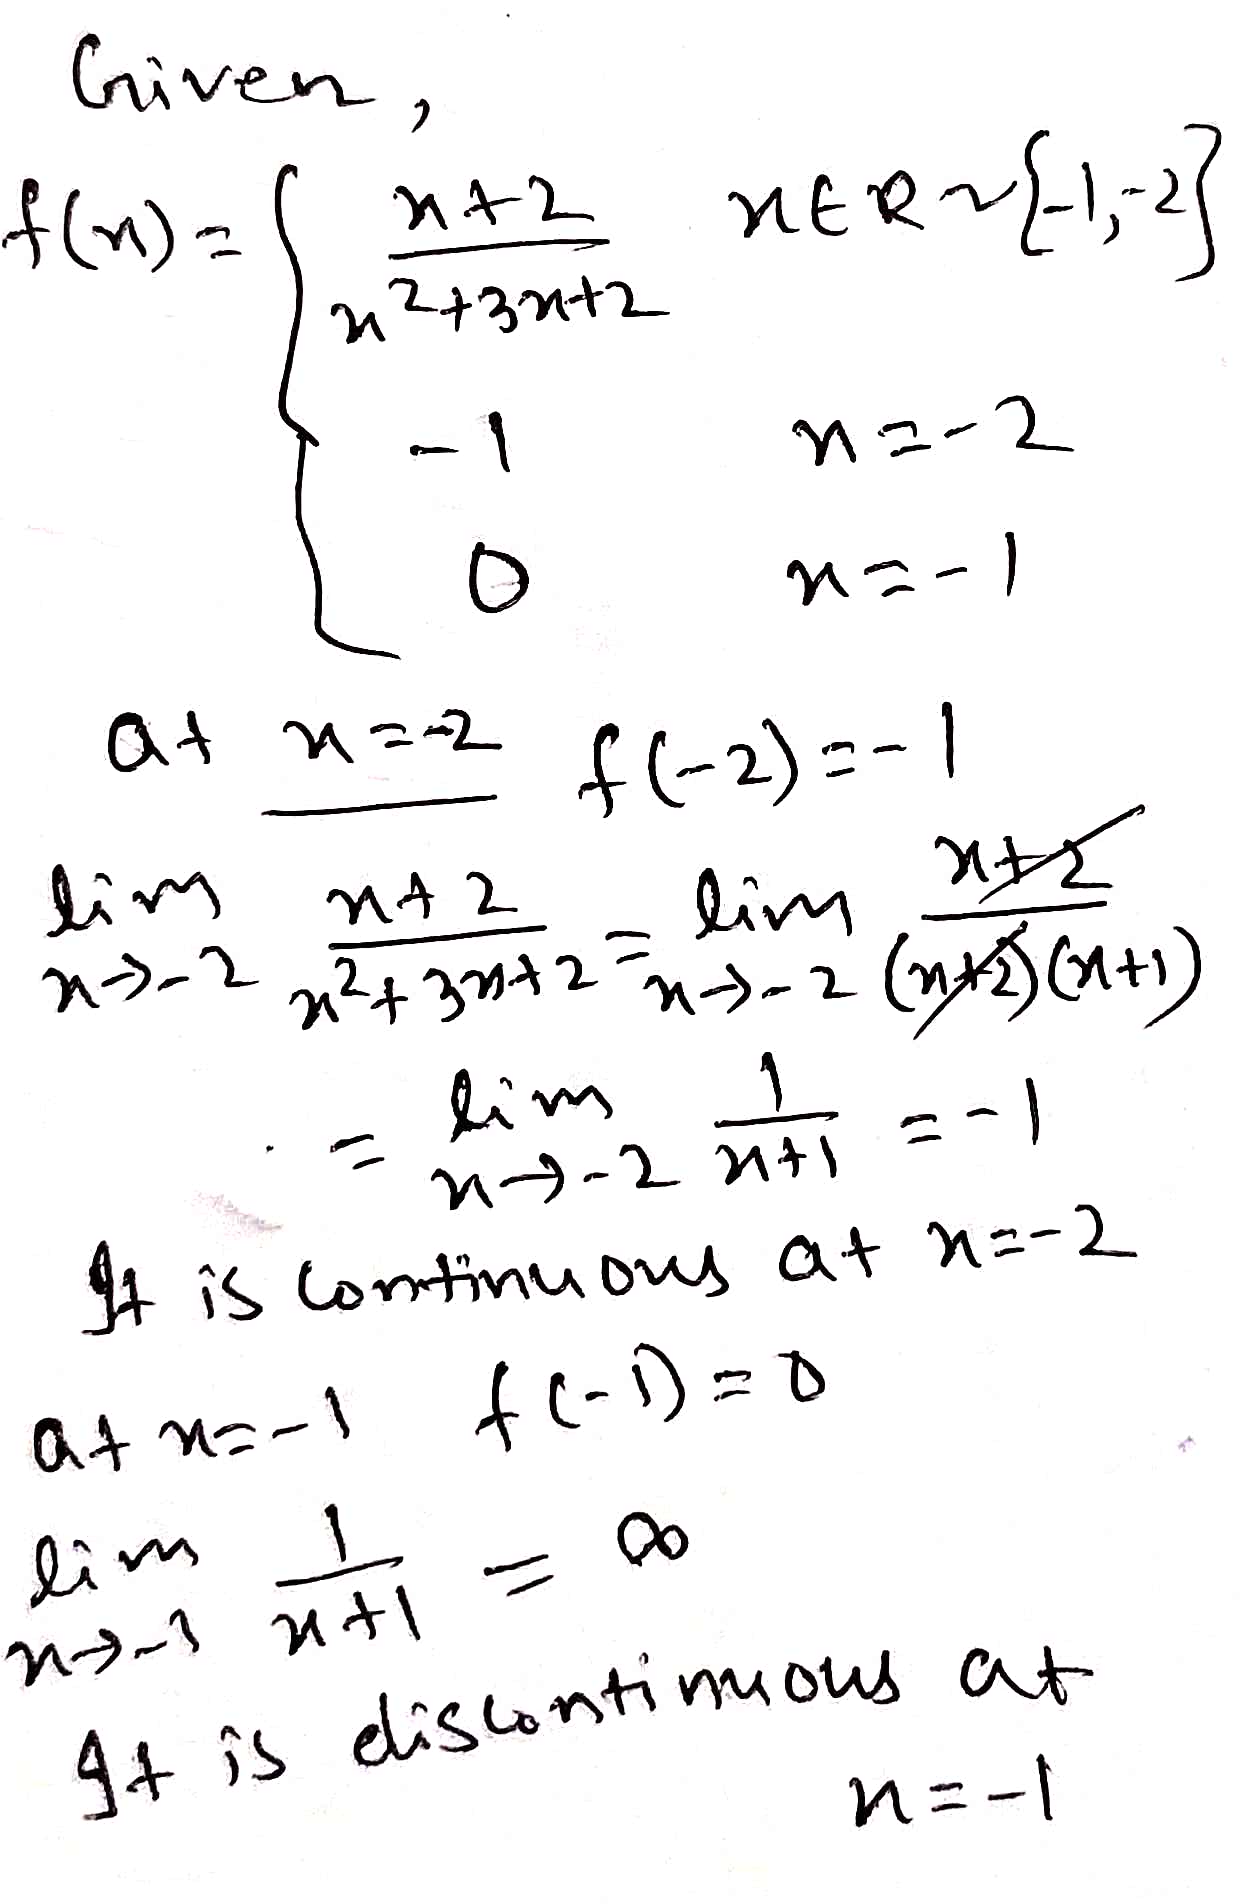 Given,
f(x) = { x+2 / x²+3x+2 x∈R ~ {-1,-2}
-1 x=-2
0 x=-1
at x=-2 f(-2) = -1
lim x→-2 x+2 / x²+3x+2 = lim x→-2 x+2 / (x+2)(x+1)
= lim x→-2 1 / x+1 = -1
It is continuous at x=-2
at x=-1 f(-1) = 0
lim x→-1 1 / x+1 = ∞
It is discontinuous at
x=-1